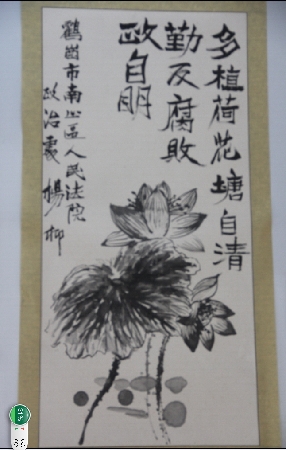 多植荷花塘自清
勤反腐败
政自明
鹤岗市南山區人民法院
政治處 楊柳